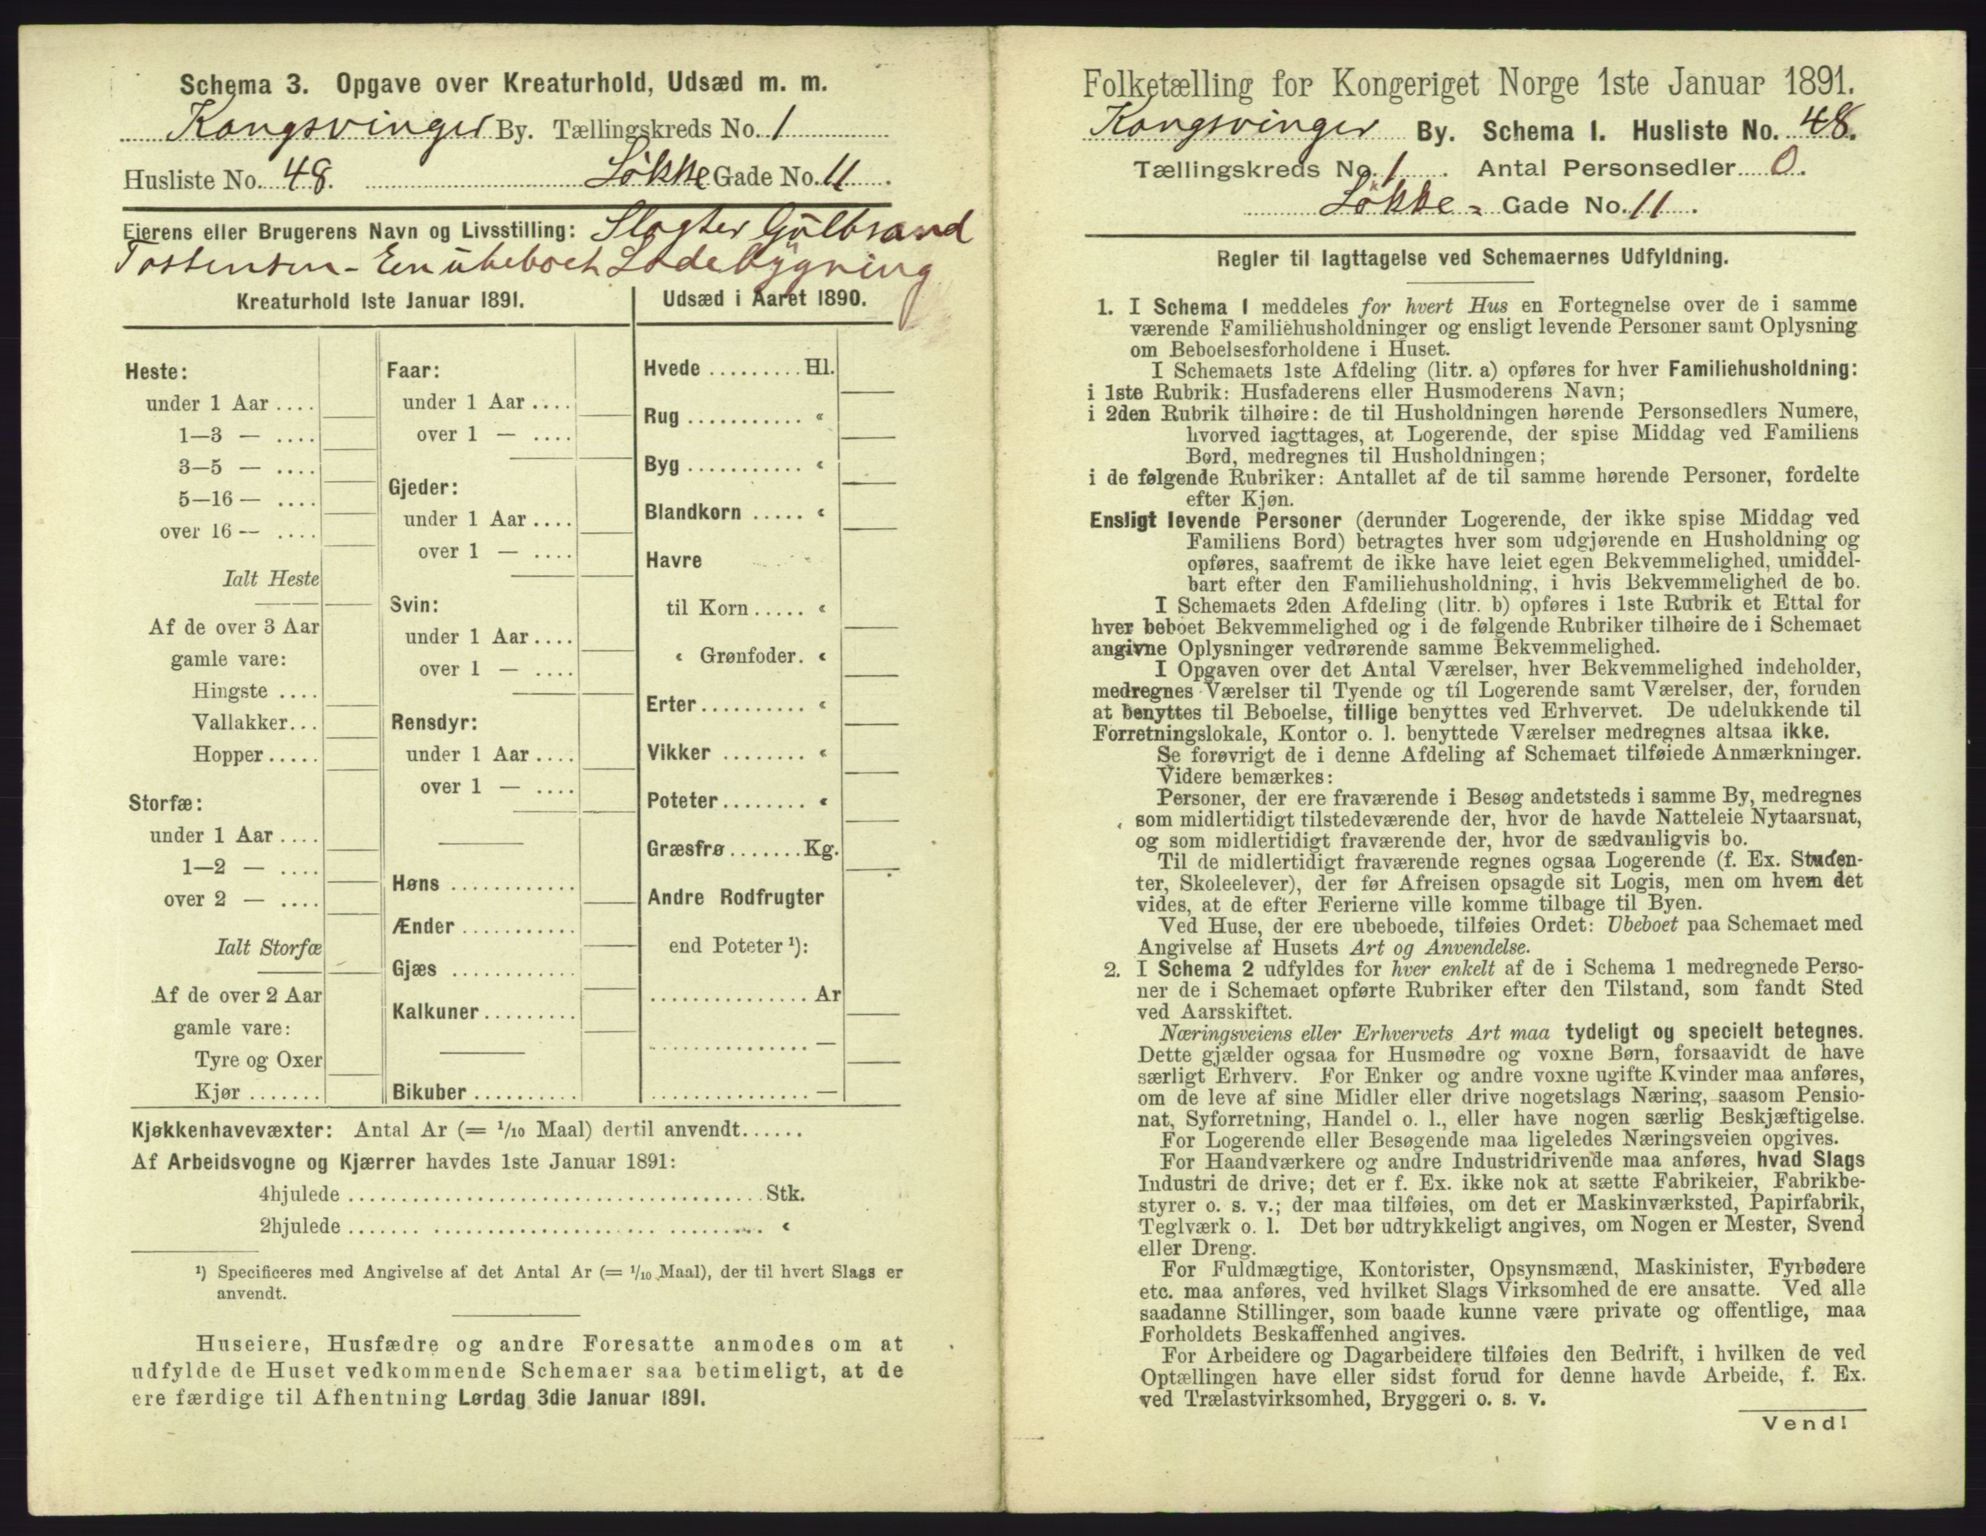 Schema 3. Opgave over Kreaturhold, Udsæd m. m.
Kongsvinger By. Tællingskreds No. 1
Husliste No. 48. Løkke Gade No. 11.
Eierens eller Brugerens Navn og Livsstilling: Slagter Gulbrand
Tostensen - En ubeboet Ladebygning
Kreaturhold 1ste Januar 1891.
Heste:
under 1 Aar ....
1—3 — ....
3—5 — ....
5—16 — ....
over 16 — ....
Ialt Heste
Af de over 3 Aar
gamle vare:
Hingste ....
Vallakker...
Hopper.....
Storfæ:
under 1 Aar ....
1—2 — ....
over 2 — ....
Ialt Storfæ
Af de over 2 Aar
gamle vare:
Tyre og Oxer
Kjør .......
Faar:
under 1 Aar ....
over 1 — ....
Gjeder:
under 1 Aar ....
over 1 — ....
Svin:
under 1 Aar ....
over 1 — ....
Rensdyr:
under 1 Aar ....
over 1 — ....
Høns ............
Ænder ...........
Gjæs ............
Kalkuner .........
Bikuber ..........
Udsæd i Aaret 1890.
Hvede ......... Hl.
Rug ........... «
Byg ........... «
Blandkorn ..... «
Havre
til Korn ..... «
« Grønfoder. «
Erter .......... «
Vikker ........ «
Poteter ........ «
Græsfrø ....... Kg.
Andre Rodfrugter
end Poteter ¹):
............... Ar
............... —
............... —
Kjøkkenhavevæxter: Antal Ar (= 1/10 Maal) dertil anvendt......
Af Arbeidsvogne og Kjærrer havdes 1ste Januar 1891:
4hjulede ........................................ Stk.
2hjulede ........................................ «
¹) Specificeres med Angivelse af det Antal Ar (= 1/10 Maal), der til hvert Slags er
anvendt.
Huseiere, Husfædre og andre Foresatte anmodes om at
udfylde de Huset vedkommende Schemaer saa betimeligt, at de
ere færdige til Afhentning Lørdag 3die Januar 1891.
Folketælling for Kongeriget Norge 1ste Januar 1891.
Kongsvinger By. Schema 1. Husliste No. 48.
Tællingskreds No. 1. Antal Personsedler 0.
Løkke- Gade No. 11.
Regler til Iagttagelse ved Schemaernes Udfyldning.
1. I Schema 1 meddeles for hvert Hus en Fortegnelse over de i samme
værende Familiehusholdninger og ensligt levende Personer samt Oplysning
om Beboelsesforholdene i Huset.
I Schemaets 1ste Afdeling (litr. a) opføres for hver Familiehusholdning:
i 1ste Rubrik: Husfaderens eller Husmoderens Navn;
i 2den Rubrik tilhøire: de til Husholdningen hørende Personsedlers Numere,
hvorved iagttages, at Logerende, der spise Middag ved Familiens
Bord, medregnes til Husholdningen;
i de følgende Rubriker: Antallet af de til samme hørende Personer, fordelte
efter Kjøn.
Ensligt levende Personer (derunder Logerende, der ikke spise Middag ved
Familiens Bord) betragtes hver som udgjørende en Husholdning og
opføres, saafremt de ikke have leiet egen Bekvemmelighed, umiddel-
bart efter den Familiehusholdning, i hvis Bekvemmelighed de bo.
I Schemaets 2den Afdeling (litr. b) opføres i 1ste Rubrik et Ettal for
hver beboet Bekvemmelighed og i de følgende Rubriker tilhøire de i Schemaet
angivne Oplysninger vedrørende samme Bekvemmelighed.
I Opgaven over det Antal Værelser, hver Bekvemmelighed indeholder,
medregnes Værelser til Tyende og til Logerende samt Værelser, der, foruden
at benyttes til Beboelse, tillige benyttes ved Erhvervet. De udelukkende til
Forretningslokale, Kontor o. l. benyttede Værelser medregnes altsaa ikke.
Se forøvrigt de i denne Afdeling af Schemaet tilføiede Anmærkninger.
Videre bemærkes:
Personer, der ere fraværende i Besøg andetsteds i samme By, medregnes
som midlertidigt tilstedeværende der, hvor de havde Natteleie Nytaarsnat,
og som midlertidigt fraværende der, hvor de sædvanligvis bo.
Til de midlertidigt fraværende regnes ogsaa Logerende (f. Ex. Studen-
ter, Skoleelever), der før Afreisen opsagde sit Logis, men om hvem det
vides, at de efter Ferierne ville komme tilbage til Byen.
Ved Huse, der ere ubeboede, tilføies Ordet: Ubeboet paa Schemaet med
Angivelse af Husets Art og Anvendelse.
2. I Schema 2 udfyldes for hver enkelt af de i Schema 1 medregnede Perso-
ner de i Schemaet opførte Rubriker efter den Tilstand, som fandt Sted
ved Aarsskiftet.
Næringsveiens eller Erhvervets Art maa tydeligt og specielt betegnes.
Dette gjælder ogsaa for Husmødre og voxne Børn, forsaavidt de have
særligt Erhverv. For Enker og andre voxne ugifte Kvinder maa anføres,
om de leve af sine Midler eller drive nogetslags Næring, saasom Pensio-
nat, Syforretning, Handel o. l., eller have nogen særlig Beskjæftigelse.
For Logerende eller Besøgende maa ligeledes Næringsveien opgives.
For Haandværkere og andre Industridrivende maa anføres, hvad Slags
Industri de drive; det er f. Ex. ikke nok at sætte Fabrikeier, Fabrikbe-
styrer o. s. v.; der maa tilføies, om det er Maskinværksted, Papirfabrik,
Teglværk o. l. Det bør udtrykkeligt angives, om Nogen er Mester, Svend
eller Dreng.
For Fuldmægtige, Kontorister, Opsynsmænd, Maskinister, Fyrbødere
etc. maa anføres, ved hvilket Slags Virksomhed de ere ansatte. Ved alle
saadanne Stillinger, som baade kunne være private og offentlige, maa
Forholdets Beskaffenhed angives.
For Arbeidere og Dagarbeidere tilføies den Bedrift, i hvilken de ved
Optællingen have eller sidst forud for denne havde Arbeide, f. Ex.
ved Trælastvirksomhed, Bryggeri o. s. v.
Vend!